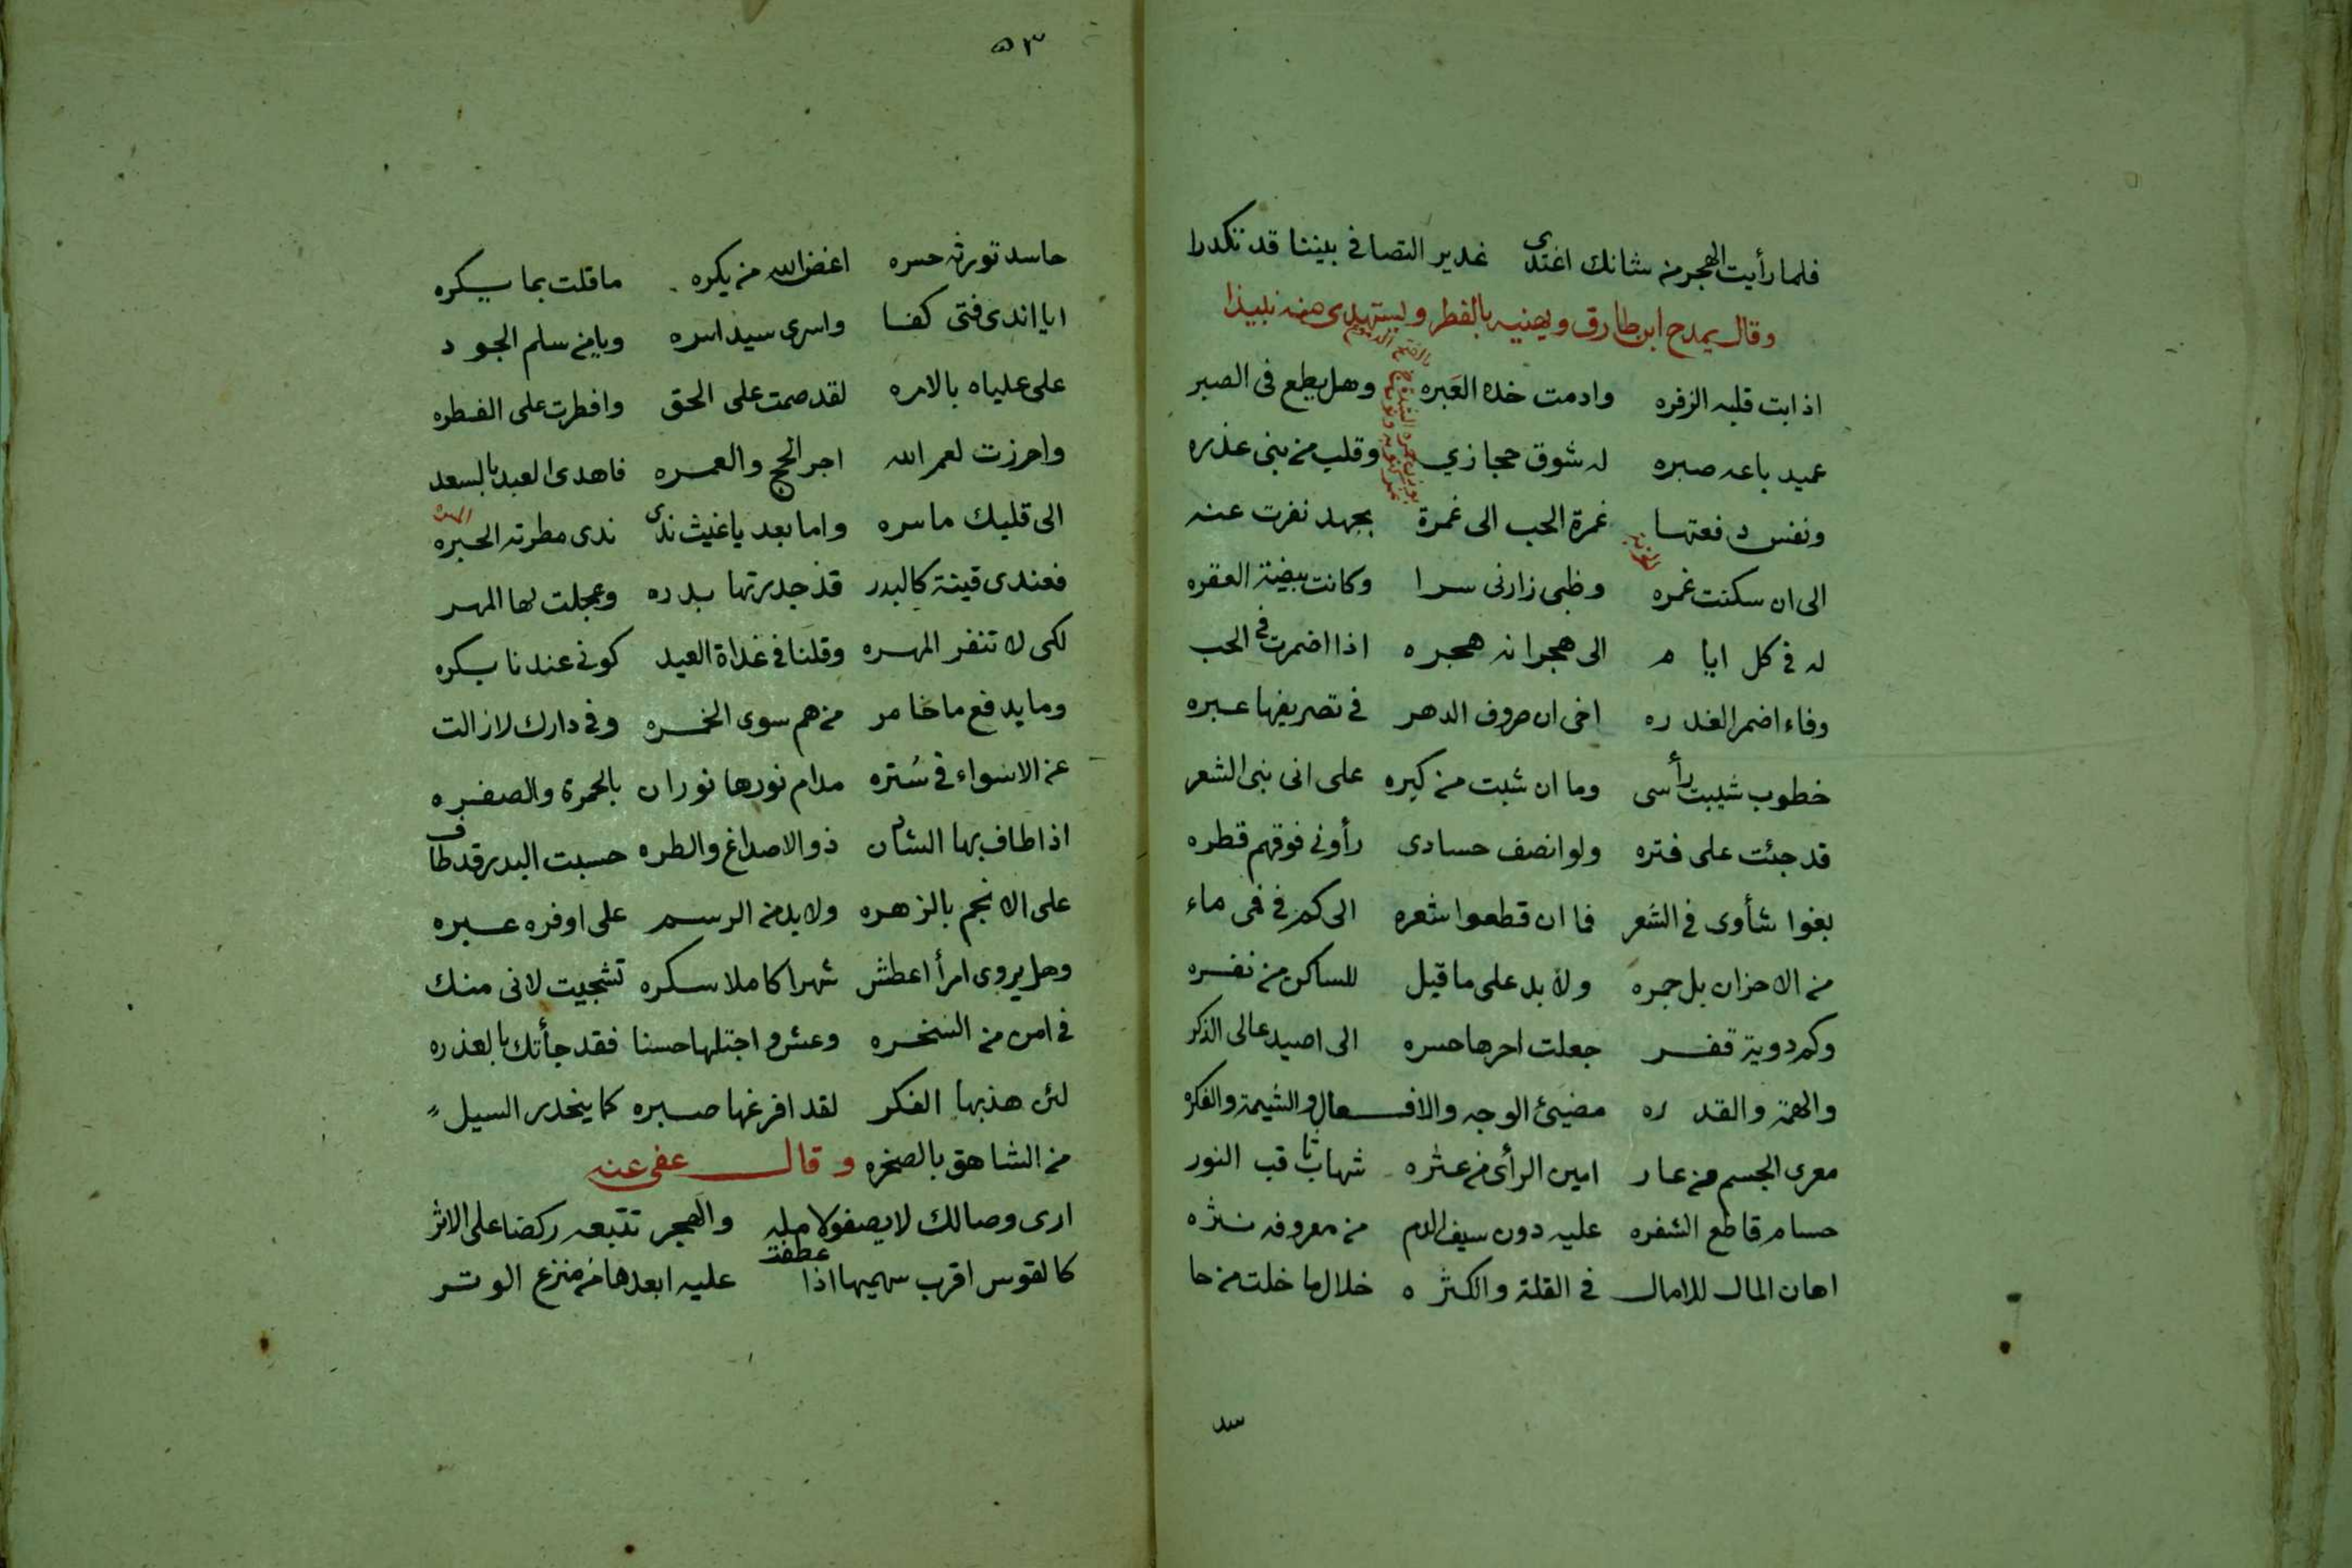 فلما رأيت الهجر من شانك اغتدى غدير التصافى بيننا قد تكدرا
وقال يمدح ابن طارق ويهنيه بالفطر ويستهدى منه نبيذا
اذابت قلبه الزفره وادمت خده العَبره وهل يطمع فى الصبر
عميد باعه صبره له شوق حجازي وقلب من بنى عذره
ونفس دفعتها غمرة الحب الى غمرة بجهد نفرت عنه
الى ان سكنت غمره وظبى زارنى سرا وكانت بيضة العقره
له فى كل ايام الى هجرانه هجره اذا اضمرت فى الحب
وفاء اضمر الغدره اخى ان صروف الدهر فى تصريفها عبره
خطوب شيبت رأسى وما ان شبت من كبره على انى نبى الشعر
قد جئت على فتره ولو انصف حسادى رأونى فوقهم قطره
بغوا شأوى فى الشعر فما ان قطعوا شعره الى كم فى فمى ماء
من الاحزان بل جمره ولا بد على ما قيل للساكن من نفره
وكم دوية قفر جعلت احرها حسره الى اصيد عالى الذكر
والهمة والقدره مضيئ الوجه والافعال والشيمة والفكره
معرى الجسم من عار امين الرأى من عثره شهاب ثاقب النور
حسام قاطع الشفره عليه دون سيف الذم من معروفه نثره
اهان المال للامال فى القلة والكثره خلال ما خلت من حا
سد
٥٣
حاسد تورثه حسره اغض الله من يكره ما قلت بما يكره
ايا اندى فتى كفا واسرى سيد اسره ويا من سلم الجود
على علياه بالامره لقد صمت على الحق وافطرت على الفطره
واحرزت لعمر الله اجر الحج والعمره فاهدى العيد بالسعد
الى قلبك ما سره واما بعد يا غيث ندى ندى مطرته الحبره
فعندى قينة كالبدر قد جدرتها بدره وعجلت لها المهر
لكى لا تنفر المهره وقلنا فى غداة العيد كونى عندنا بكره
وما يدفع ما خامر من هم سوى الخمره وفى دارك لا زالت
عن الاسواء فى سُتره مدام نورها نوران بالحمرة والصفره
اذا طاف بها الشادن ذو الاصداغ والطره حسبت البدر قد طاف
على الانجم بالزهره ولا بد من الرسم على اوفره عبره
وهل يروى امرأ اعطش شهرا كاملا سكره تشجيت لانى منك
فى امن من السخره وعش واجتلها حسنا فقد جأتك بالعذره
لئن هذبها الفكر لقد افرغها صبره كما ينحدر السيل
من الشاهق بالصخره وقال عفى عنه
ارى وصالك لا يصفو لامله والهجر تتبعه ركضا على الاثر
كالقوس اقرب سهميها اذا عطفت عليه ابعدها من منزع الوتر